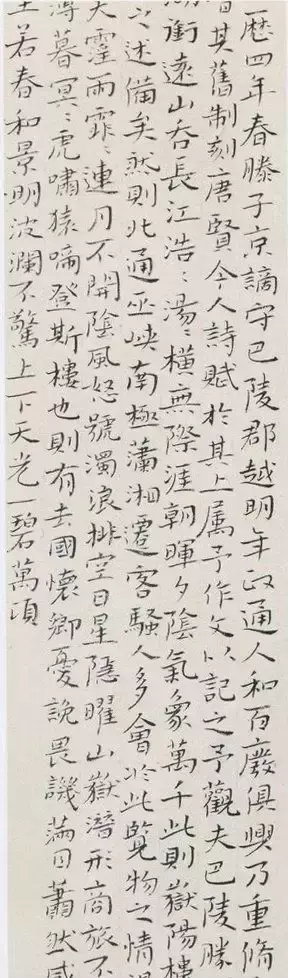 歷四年春滕子京謫守巴陵郡越明年政通人和百廢俱興乃重脩
其舊制刻唐賢今人詩賦於其上属予作文以記之予觀夫巴陵勝
銜遠山吞長江浩〻湯〻橫無際涯朝暉夕陰氣象萬千此則嶽陽樓
之述備矣然則北通巫峽南極瀟湘遷客騷人多會於此覽物之情
夫霪雨霏〻連月不開陰風怒號濁浪排空日星隱曜山嶽潛形商旅不
薄暮冥〻虎嘯猿啼登斯樓也則有去國懷鄉憂讒畏譏滿目蕭然感
至若春和景明波瀾不驚上下天光一碧萬頃